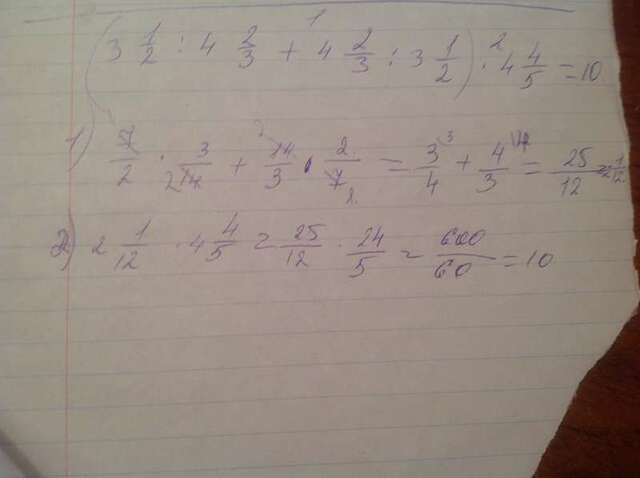 (3 1/2 : 4 2/3 + 4 2/3 : 3 1/2) · 4 4/5 = 10
1) 7/2 · 3/14 + 14/3 · 2/7 = 3/4 + 4/3 = 25/12 = 2 1/12
2) 2 1/12 · 4 4/5 = 25/12 · 24/5 = 600/60 = 10